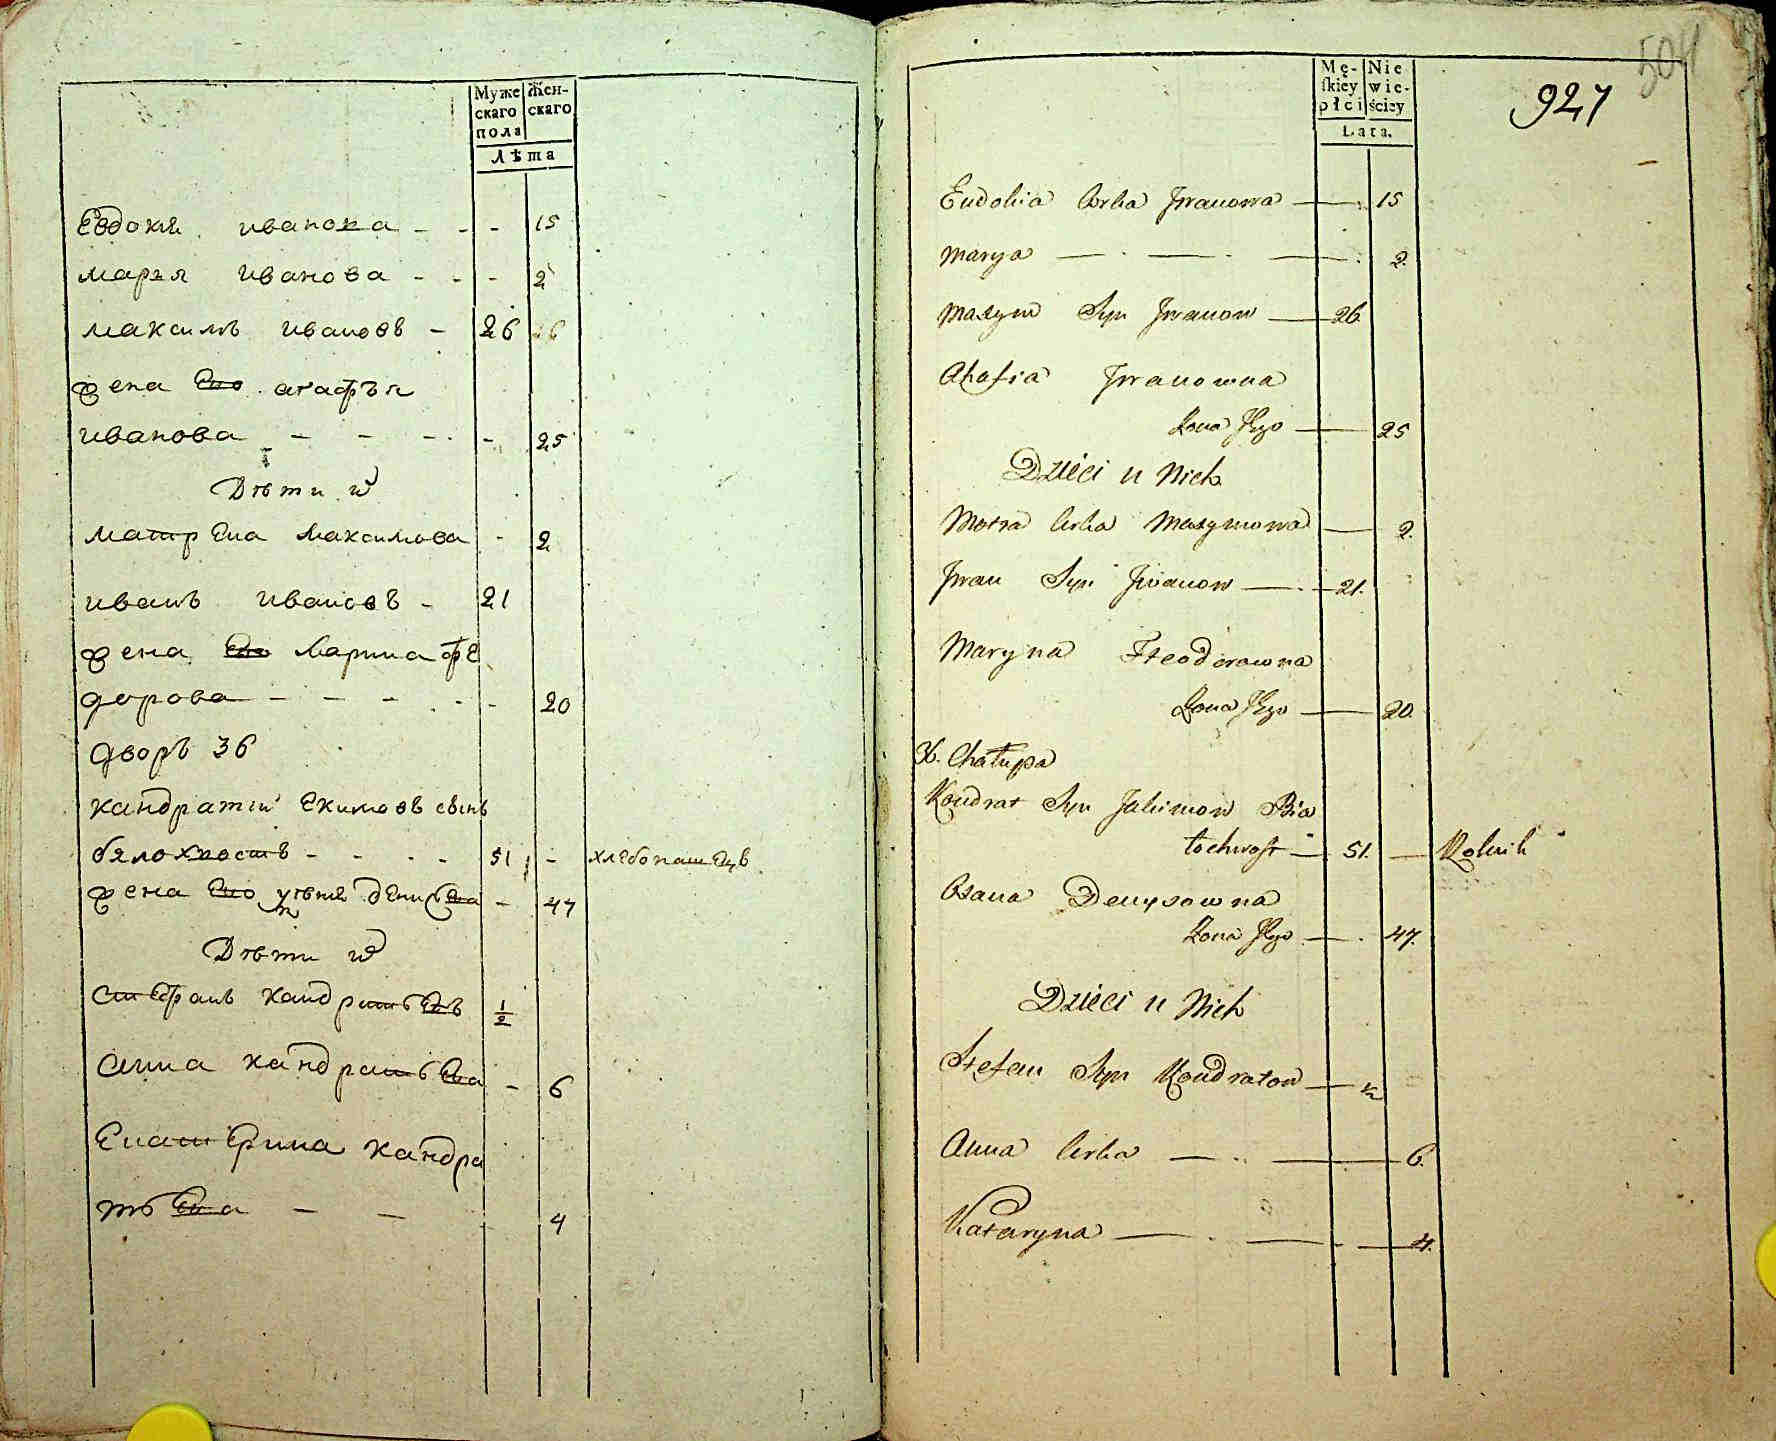 Муже
скаго
пола
Жен-
скаго
Лѣта
Евдокия иванова - - - 15
марья иванова - - - 2
максимъ ивановъ - 26 26
жена Его агафья
иванова - - - - 25
Дѣти ихъ
матрЕна максимова - 2
иванъ ивановъ - 21
жена Его марина фЕ
дорова - - - - - 20
дворъ 36
кандратий Екимовъ сынъ
бялохвостъ - - - - 51 - хлебопашЕцъ
жена Его дЕнисЕва - 47
Дѣти ихъ
стЕфанъ кандратьЕвъ 1/2
анна кандратьЕва - 6
ЕкатЕрина кандра
тьЕва - - 4
504
927
Mę-
skiey
płci
Nie
wie-
ściey
Lata.
Eudokia Corka Jwanowa — 15
Marya — . — . — . 2.
Maxym Syn Jwanow — 26.
Ahafia Jwanowna
Zona Jego — 25
Dzieci u Nich
Motra Corka Maxymowa — 2.
Jwan Syn Jwanow — . — 21.
Maryna Fteodorowna
Zona Jego — 20.
36. Chałupa
Kondrat Syn Jakimow Bia
łochwost — 51. — Rolnik
Oxana Denysowna
Zona Jego — . 47.
Dzieci u Nich
Stefan Syn Kondratow — ½
Anna Corka — .. — 6.
Kataryna — . — . — 4.